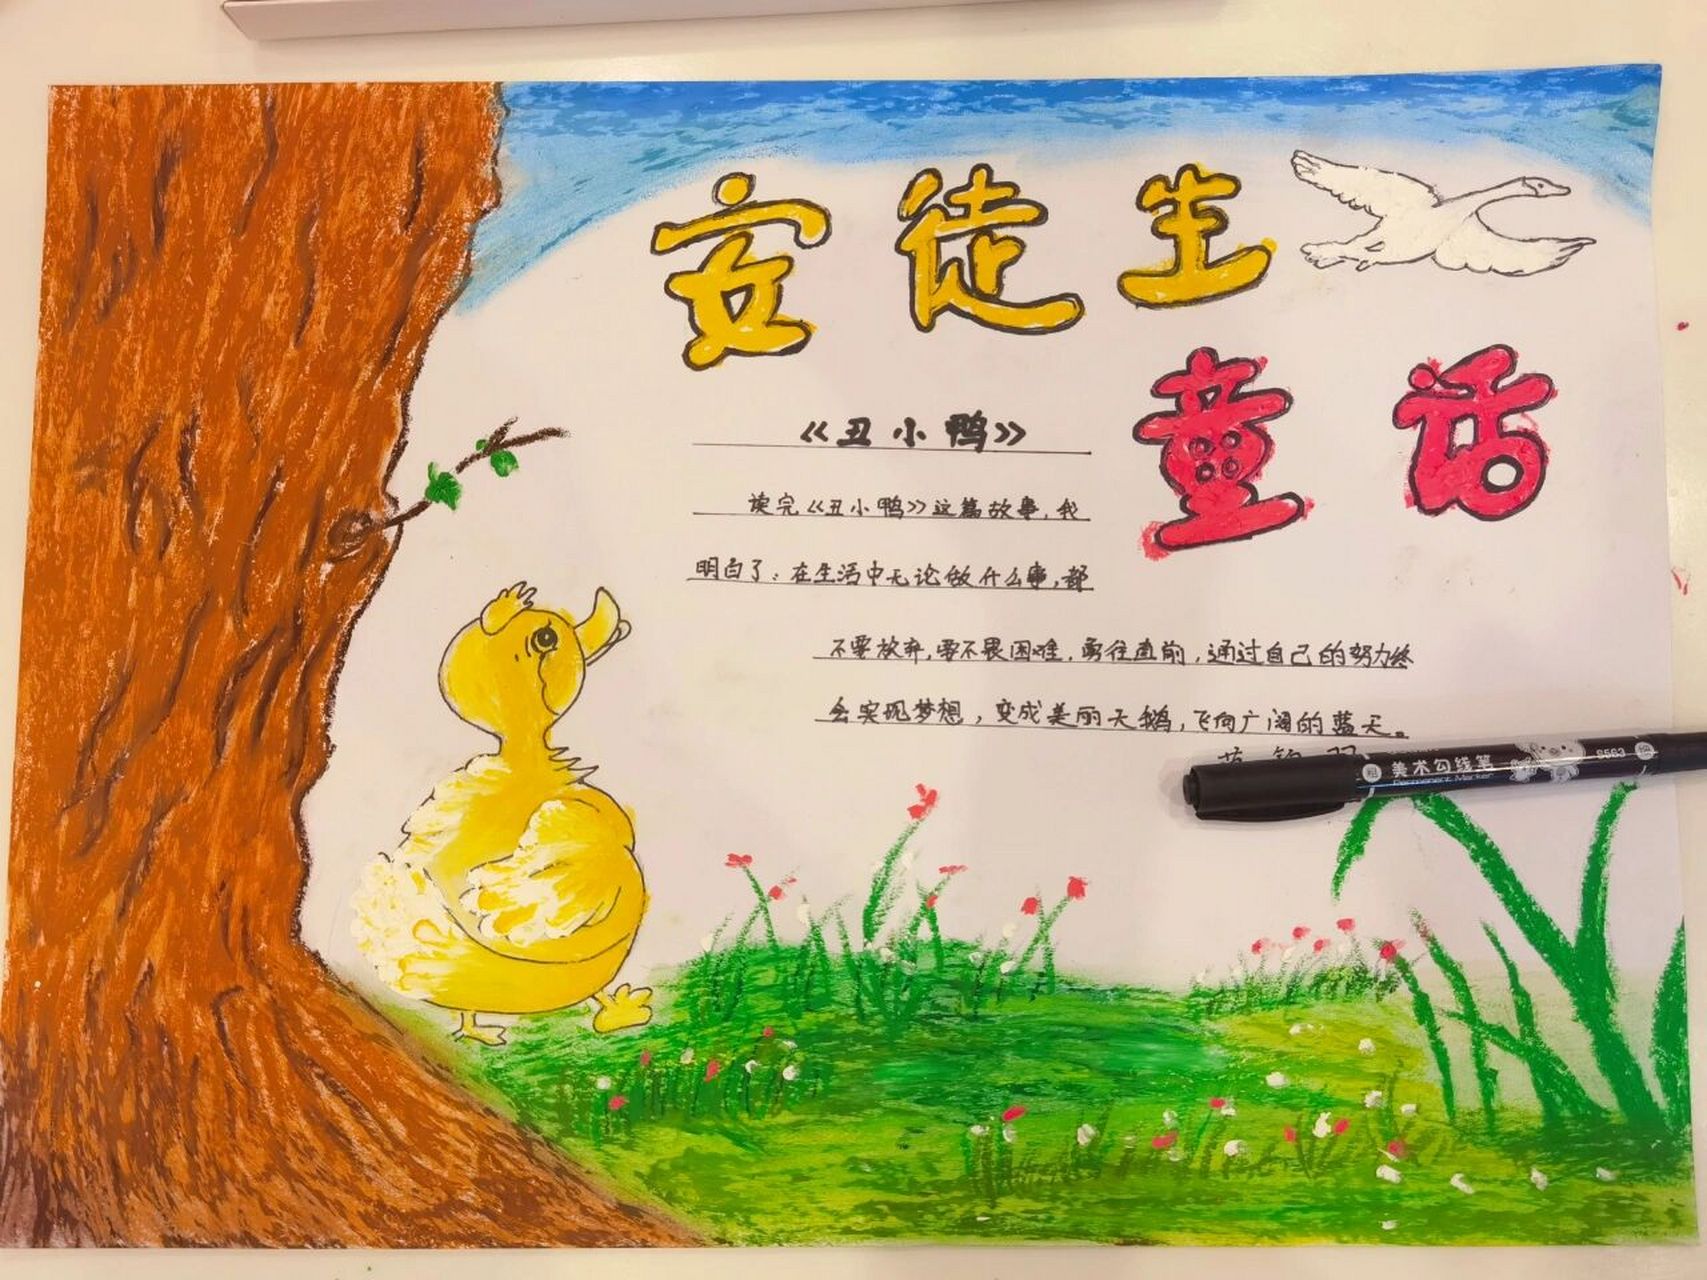 安徒生
童话
《丑小鸭》
读完《丑小鸭》这篇故事,我
明白了:在生活中无论做什么事,都
不要放弃,要不畏困难,勇往直前,通过自己的努力终
会实现梦想,变成美丽天鹅,飞向广阔的蓝天。
粗 美术勾线笔 8563
Permanent Marker